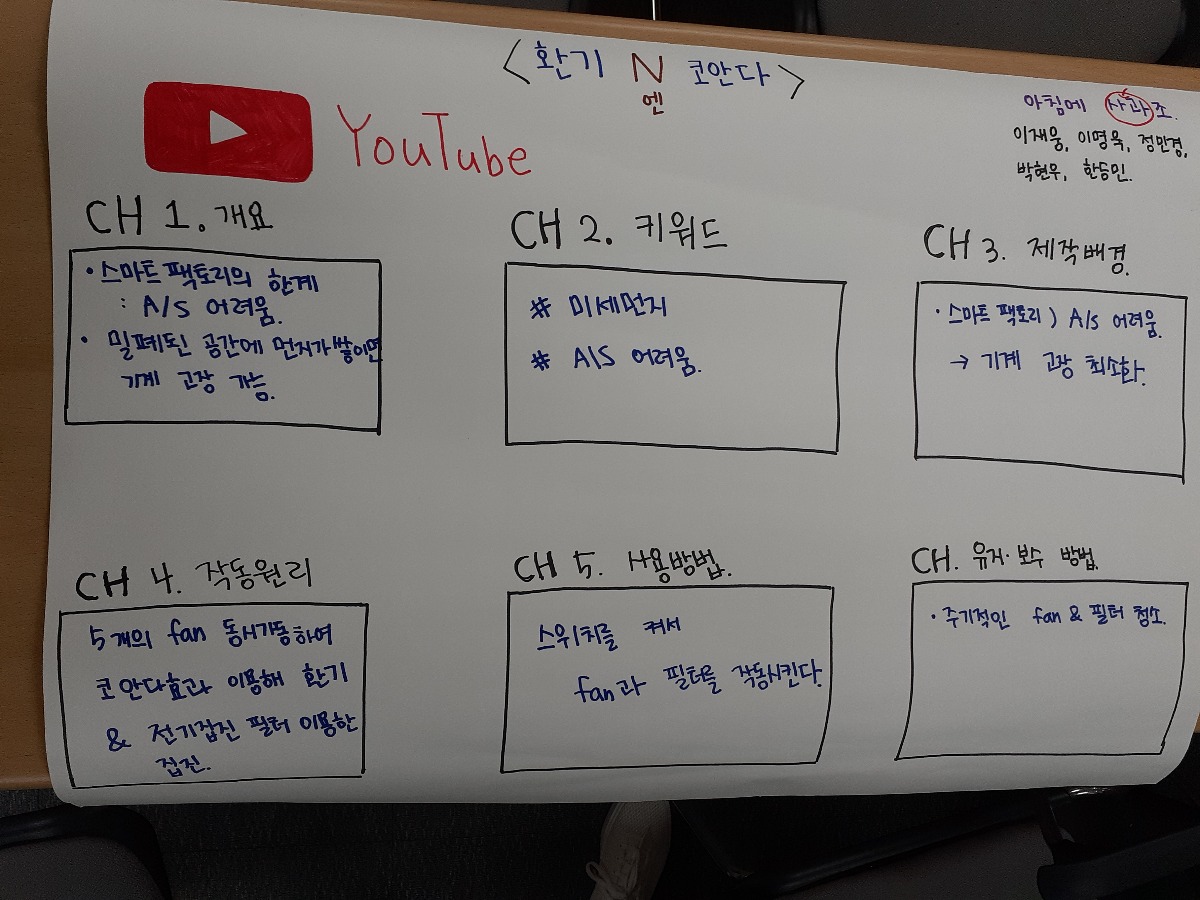 <환기 N 코안다>
엔
YouTube
아침에 사과조.
이재웅, 이명욱, 정민경,
박현우, 한승민.
CH 1. 개요
• 스마트 팩토리의 한계
: A/S 어려움.
• 밀폐된 공간에 먼지가 쌓이면
기계 고장 가능.
CH 2. 키워드
# 미세먼지
# A/S 어려움.
CH 3. 제작배경.
• 스마트 팩토리) A/S 어려움.
→ 기계 고장 최소화.
CH 4. 작동원리
5개의 fan 동시가동하여
코안다효과 이용해 환기
& 전기집진 필터 이용한
집진.
CH 5. 사용방법.
스위치를 켜서
fan과 필터를 작동시킨다.
CH. 유지·보수 방법.
• 주기적인 fan & 필터 청소.